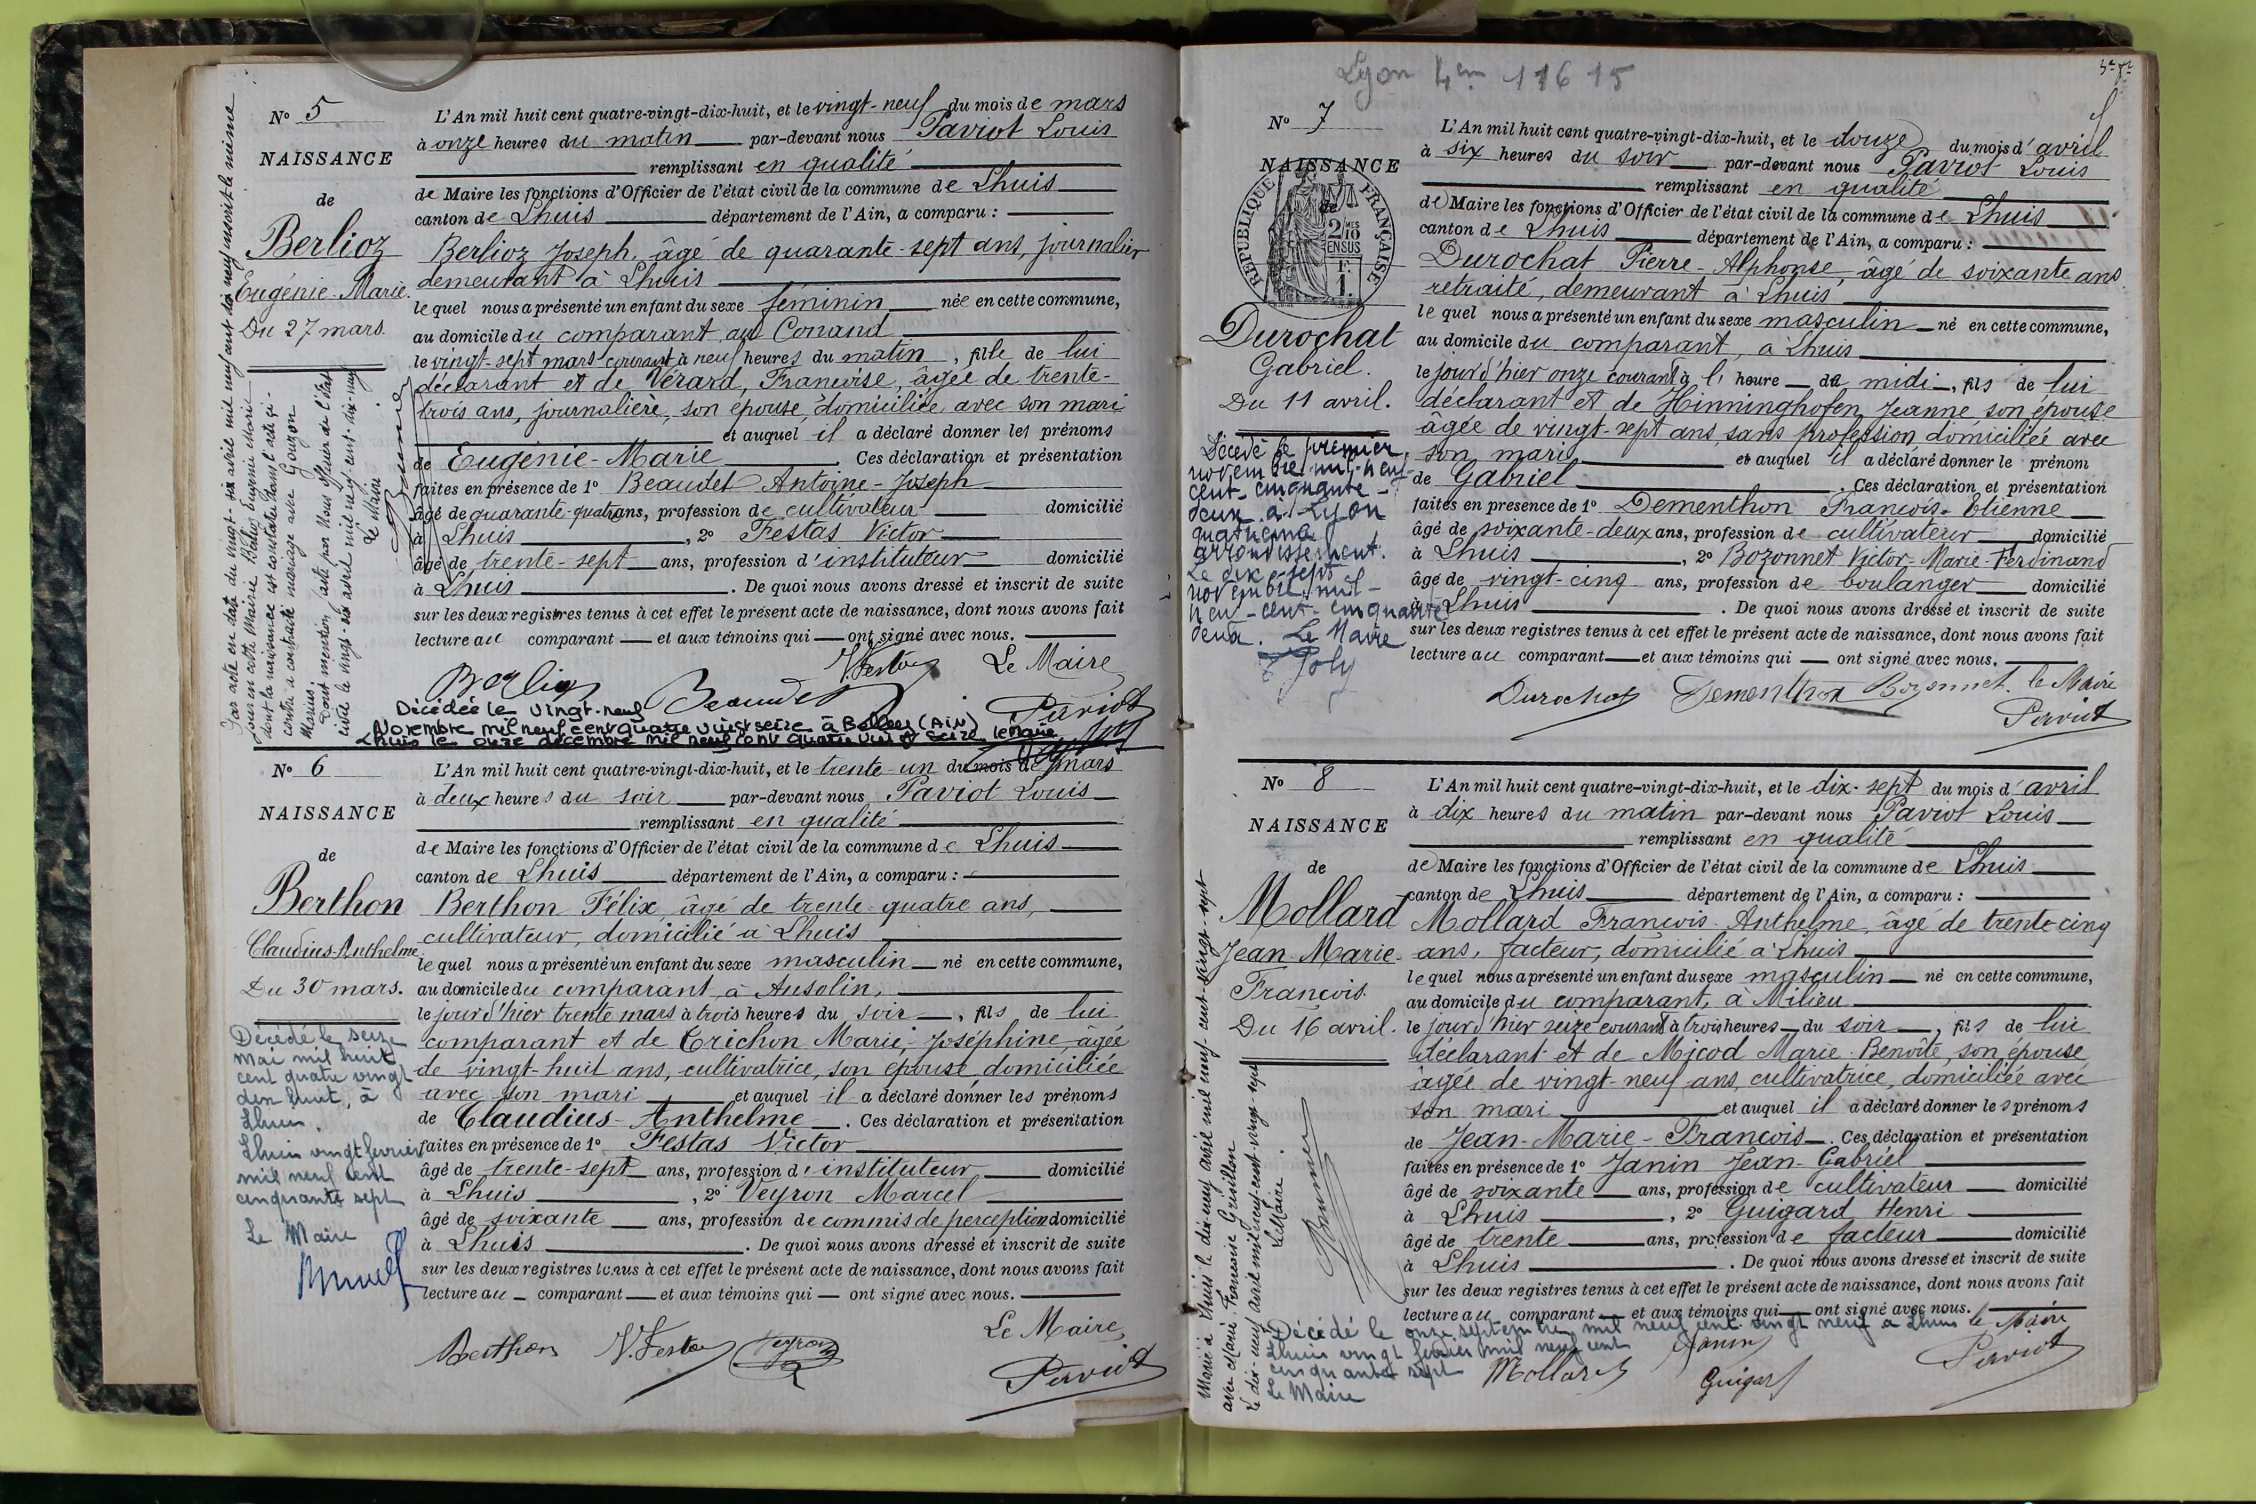 Nº 5
NAISSANCE
de
Berlioz
Eugénie-Marie.
Du 27 mars.
Par acte en date du vingt-six avril mil neuf cent dix neuf inscrit le même
jour en cette Mairie Berlioz Eugénie Marie
dont la naissance est constatée dans l'acte ci-
contre a contracté mariage avec Gougon
Marius.
Dont mention faite par Nous officier de l'état
civil le vingt-six avril mil neuf cent-dix-neuf
Le Maire.
L'An mil huit cent quatre-vingt-dix-huit, et le vingt-neuf du mois de mars
à onze heures du matin par-devant nous Paviot Louis
remplissant en qualité
de Maire les fonctions d'Officier de l'état civil de la commune de Lhuis
canton de Lhuis département de l'Ain, a comparu :
Berlioz Joseph, âgé de quarante-sept ans, journalier
demeurant à Lhuis
lequel nous a présenté un enfant du sexe féminin née en cette commune,
au domicile du comparant, au Conand
le vingt-sept mars courant à neuf heures du matin, fille de lui
déclarant et de Vérard, Françoise, âgée de trente-
trois ans, journalière, son épouse, domiciliée avec son mari
et auquel il a déclaré donner les prénoms
de Eugénie-Marie. Ces déclaration et présentation
faites en présence de 1º Beaudet Antoine-Joseph
âgé de quarante-quatre ans, profession de cultivateur domicilié
à Lhuis, 2º Festas Victor
âgé de trente-sept ans, profession d'instituteur domicilié
à Lhuis. De quoi nous avons dressé et inscrit de suite
sur les deux registres tenus à cet effet le présent acte de naissance, dont nous avons fait
lecture au comparant et aux témoins qui ont signé avec nous.
Berlioz Beaudet V. Festas Le Maire
Paviot
Décédée le vingt-neuf
Novembre mil neuf cent quatre vingt seize à Belley (Ain)
Lhuis le onze décembre mil neuf cent quatre vingt seize le Maire
Nº 6
NAISSANCE
de
Berthon
Claudius-Anthelme.
Du 30 mars.
Décédé le seize
mai mil huit
cent quatre vingt
dix huit, à
Lhuis.
Lhuis vingt février
mil neuf cent
cinquante sept
Le Maire
L'An mil huit cent quatre-vingt-dix-huit, et le trente-un du mois de mars
à deux heures du soir par-devant nous Paviot Louis
remplissant en qualité
de Maire les fonctions d'Officier de l'état civil de la commune de Lhuis
canton de Lhuis département de l'Ain, a comparu :
Berthon Félix, âgé de trente-quatre ans,
cultivateur, domicilié à Lhuis
lequel nous a présenté un enfant du sexe masculin né en cette commune,
au domicile du comparant, à Ansolin,
le jour d'hier trente mars à trois heures du soir, fils de lui
comparant et de Trichon Marie-Joséphine, âgée
de vingt-huit ans, cultivatrice, son épouse, domiciliée
avec son mari et auquel il a déclaré donner les prénoms
de Claudius-Anthelme. Ces déclaration et présentation
faites en présence de 1º Festas Victor
âgé de trente-sept ans, profession d'instituteur domicilié
à Lhuis, 2º Veyron Marcel
âgé de soixante ans, profession de commis de perception domicilié
à Lhuis. De quoi nous avons dressé et inscrit de suite
sur les deux registres tenus à cet effet le présent acte de naissance, dont nous avons fait
lecture au comparant et aux témoins qui ont signé avec nous.
Berthon V. Festas Veyron Le Maire,
Paviot
Lyon 4em 11615
Nº 7
NAISSANCE
de
RÉPUBLIQUE FRANÇAISE
2/10MES
EN SUS
F.
1.
Durochat
Gabriel.
Du 11 avril.
Décédé le premier
novembre mil-neuf-
cent-cinquante-
deux à Lyon
quatrième
arrondissement.
Le dix-sept
novembre mil-
neuf-cent-cinquante
deux. Le Maire
Joly
L'An mil huit cent quatre-vingt-dix-huit, et le douze du mois d'avril
à six heures du soir par-devant nous Paviot Louis
remplissant en qualité
de Maire les fonctions d'Officier de l'état civil de la commune de Lhuis
canton de Lhuis département de l'Ain, a comparu :
Durochat Pierre-Alphonse, âgé de soixante ans
retraité, demeurant à Lhuis
lequel nous a présenté un enfant du sexe masculin né en cette commune,
au domicile du comparant, à Lhuis
le jour d'hier onze courant à l'heure de midi, fils de lui
déclarant et de Hinninghofen Jeanne son épouse
âgée de vingt-sept ans, sans profession, domiciliée avec
son mari et auquel il a déclaré donner le prénom
de Gabriel. Ces déclaration et présentation
faites en présence de 1º Dementhon François-Etienne
âgé de soixante-deux ans, profession de cultivateur domicilié
à Lhuis, 2º Bozonnet Victor-Marie-Ferdinand
âgé de vingt-cinq ans, profession de boulanger domicilié
à Lhuis. De quoi nous avons dressé et inscrit de suite
sur les deux registres tenus à cet effet le présent acte de naissance, dont nous avons fait
lecture au comparant et aux témoins qui ont signé avec nous.
Durochat Dementhon Bozonnet. le Maire
Paviot
Nº 8
NAISSANCE
de
Mollard
Jean-Marie-
François.
Du 16 avril.
Marié à Lhuis le dix-neuf avril mil neuf-cent-vingt-sept
avec Marie Françoise Grisillon
Le dix-neuf avril mil neuf-cent-vingt-sept
Le Maire.
L'An mil huit cent quatre-vingt-dix-huit, et le dix-sept du mois d'avril
à dix heures du matin par-devant nous Paviot Louis
remplissant en qualité
de Maire les fonctions d'Officier de l'état civil de la commune de Lhuis
canton de Lhuis département de l'Ain, a comparu :
Mollard François-Anthelme, âgé de trente-cinq
ans, facteur, domicilié à Lhuis
lequel nous a présenté un enfant du sexe masculin né en cette commune,
au domicile du comparant, à Milieu
le jour d'hier seize courant à trois heures du soir, fils de lui
déclarant et de Micod Marie-Benoîte, son épouse
âgée de vingt-neuf ans, cultivatrice, domiciliée avec
son mari et auquel il a déclaré donner les prénoms
de Jean-Marie-François. Ces déclaration et présentation
faites en présence de 1º Janin Jean-Gabriel
âgé de soixante ans, profession de cultivateur domicilié
à Lhuis, 2º Guigard Henri
âgé de trente ans, profession de facteur domicilié
à Lhuis. De quoi nous avons dressé et inscrit de suite
sur les deux registres tenus à cet effet le présent acte de naissance, dont nous avons fait
lecture au comparant et aux témoins qui ont signé avec nous.
Décédé le onze septembre mil neuf cent vingt neuf à Lhuis
Lhuis vingt février mil neuf cent
cinquante sept
Le Maire
Mollard Janin Guigard le Maire
Paviot